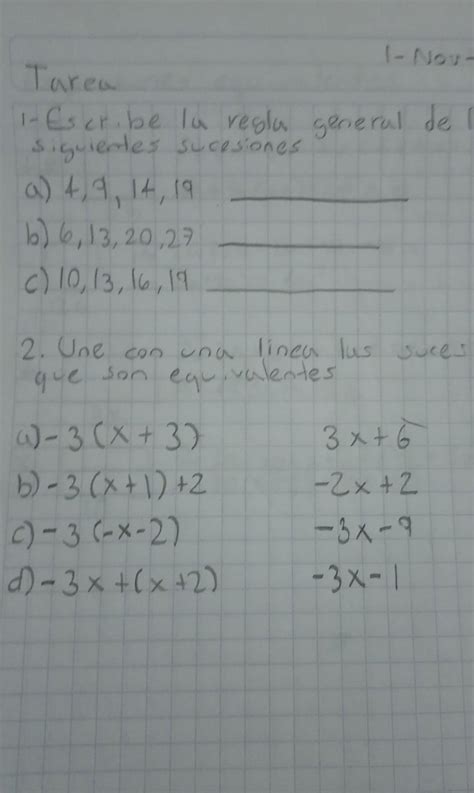 1-Nov-
Tarea
1-Escribe la regla general de l
siguientes sucesiones
a) 4, 9, 14, 19 ____________
b) 6, 13, 20, 27 ____________
c) 10, 13, 16, 19 ____________
2. Une con una linea las suces
que son equivalentes
a) -3(x+3) 3x+6
b) -3(x+1)+2 -2x+2
c) -3(-x-2) -3x-9
d) -3x+(x+2) -3x-1